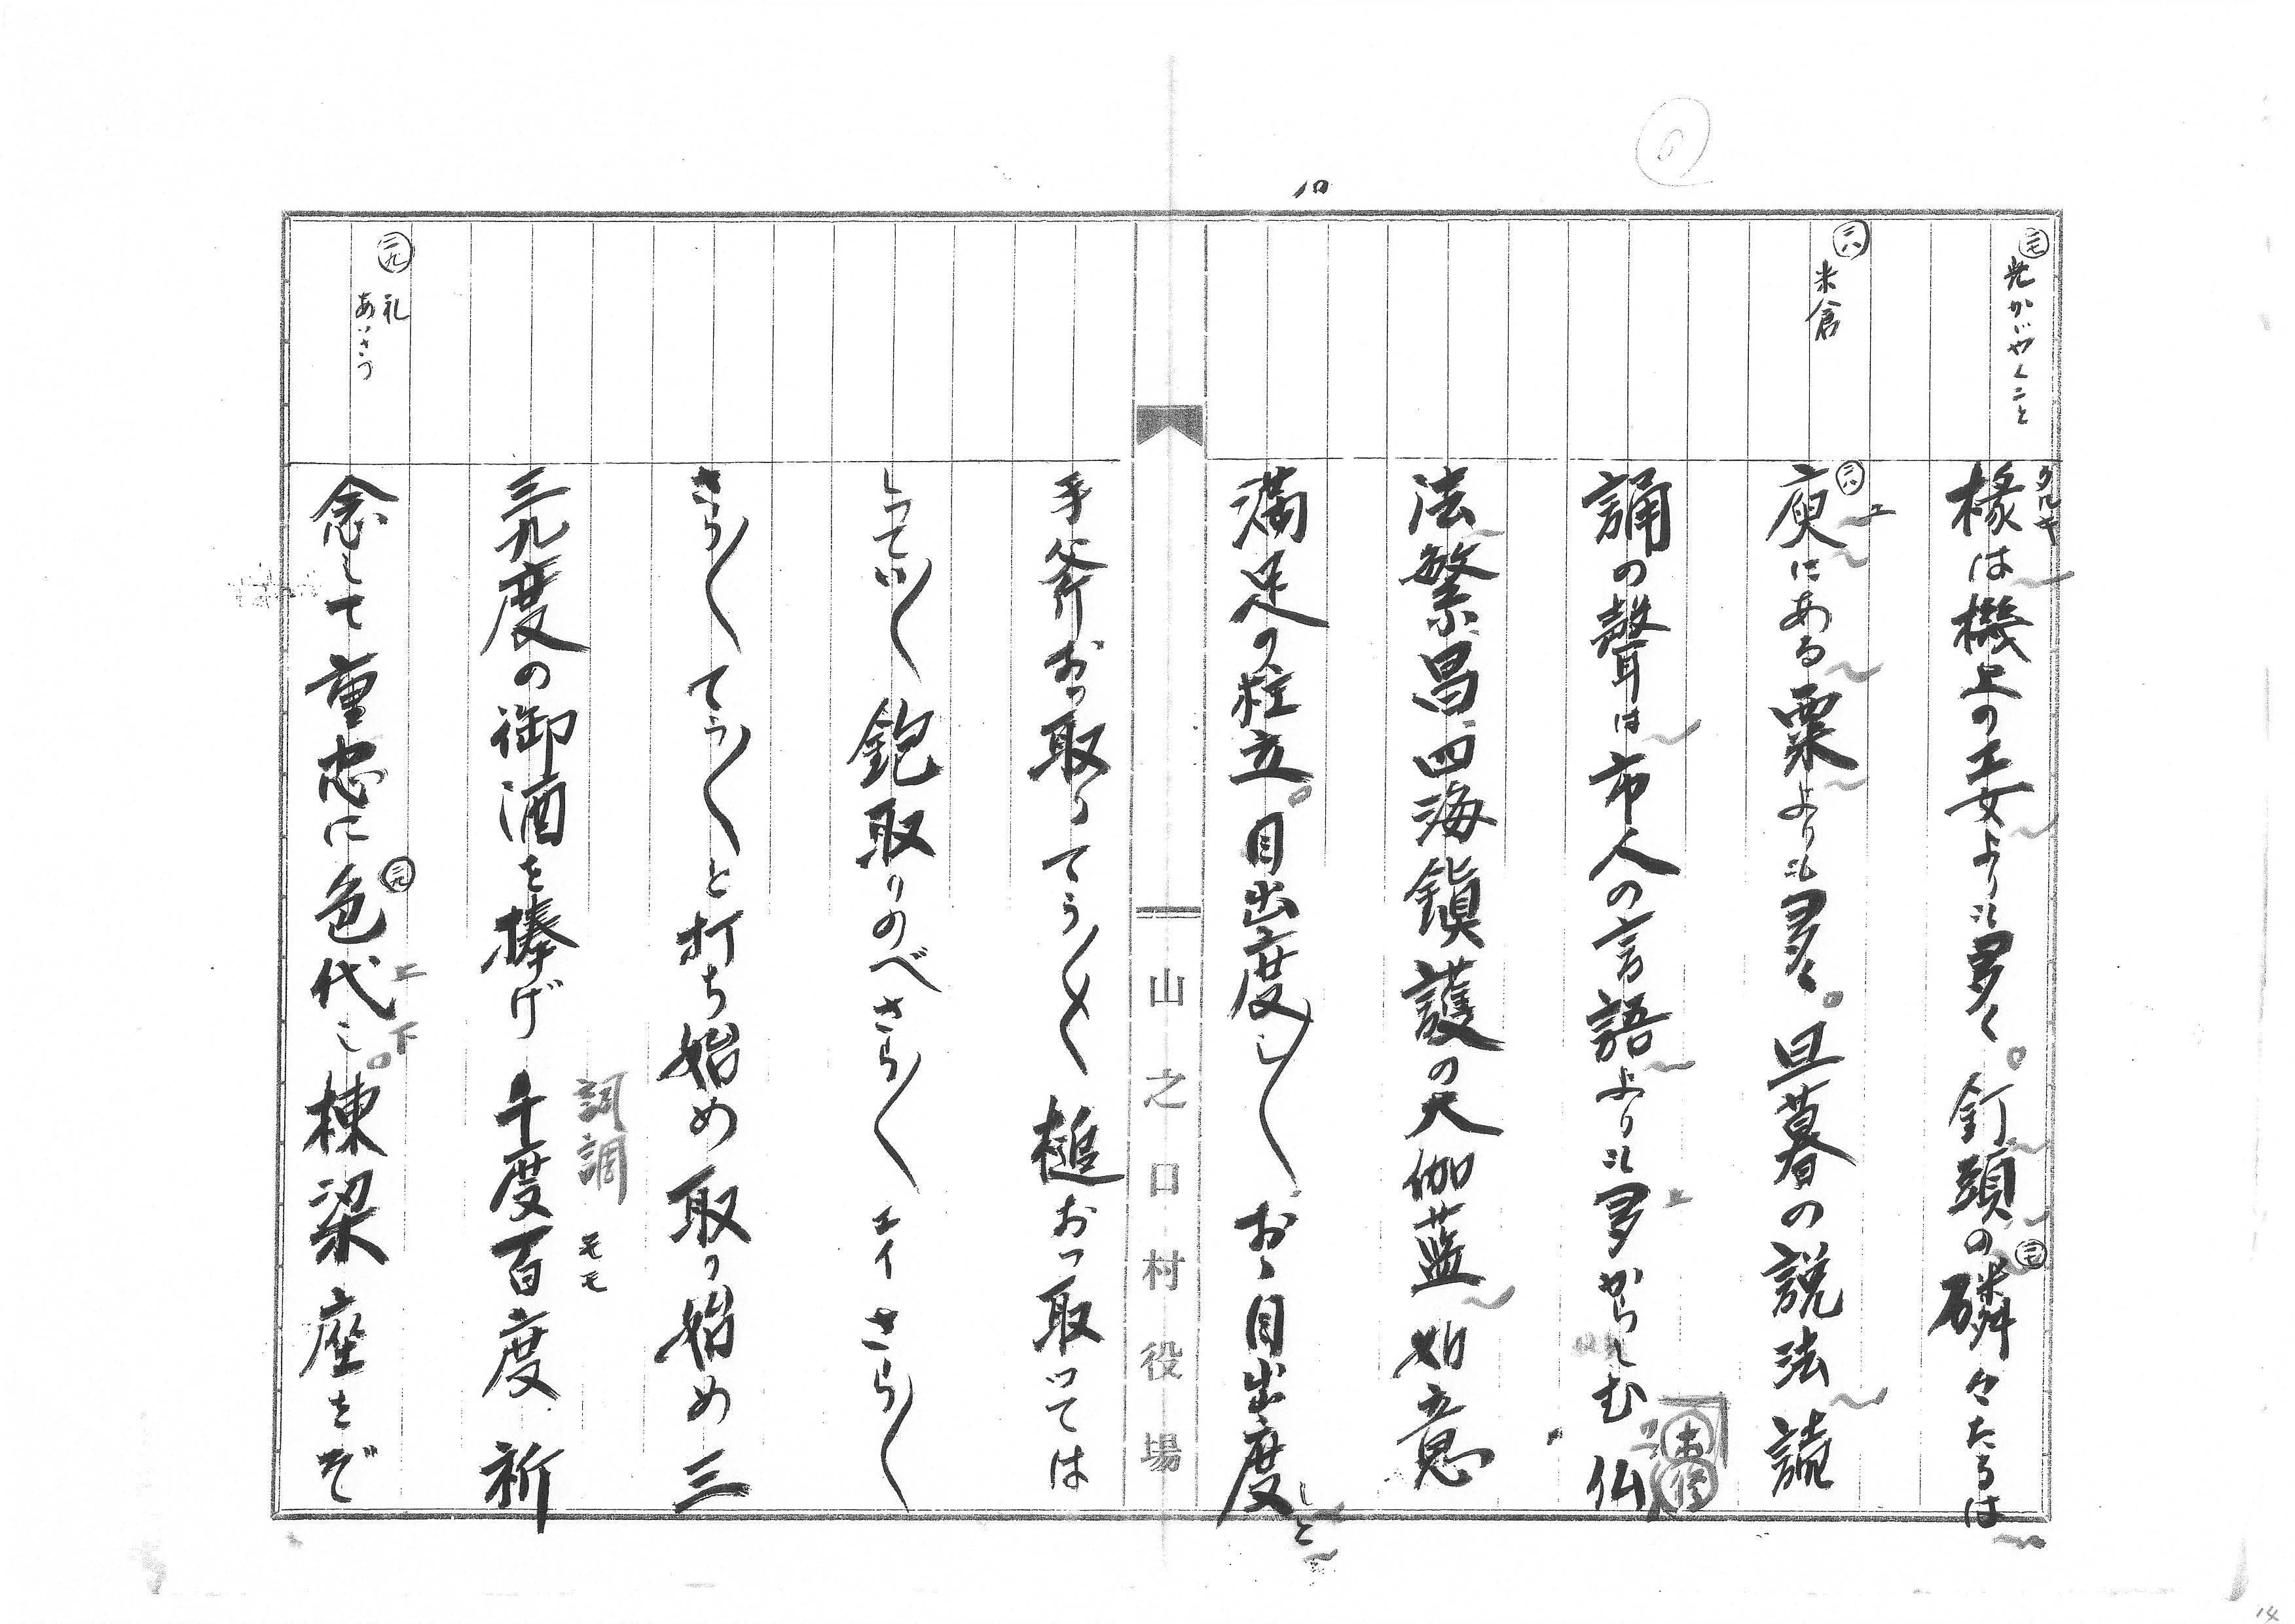 10
㊲ 光かがやくこと
㊳ 米倉
タルキ
椽は機上の工女よりも多く。釘頭の㊲磷々たるは
㊳庾にある粟よりも多く。旦暮の説法読
誦の聲は市人の言語よりも多からしむ 仏
法繁昌四海鎮護の大伽藍 如意
満足の柱立。目出度し〱 お、目出度しと
山之口村役場
手斧おっ取りてう〱〱 槌おっ取つては
しつてい〱 鉋取りのべさら〱 エイさら〱
さら〱てう〱と打ち始め取り始め三
三九度の御酒を捧げ 千度百度 祈
詞調 モモ
念して重忠に㊴色代し。棟梁座をぞ
㊴ 礼
あいさつ
14